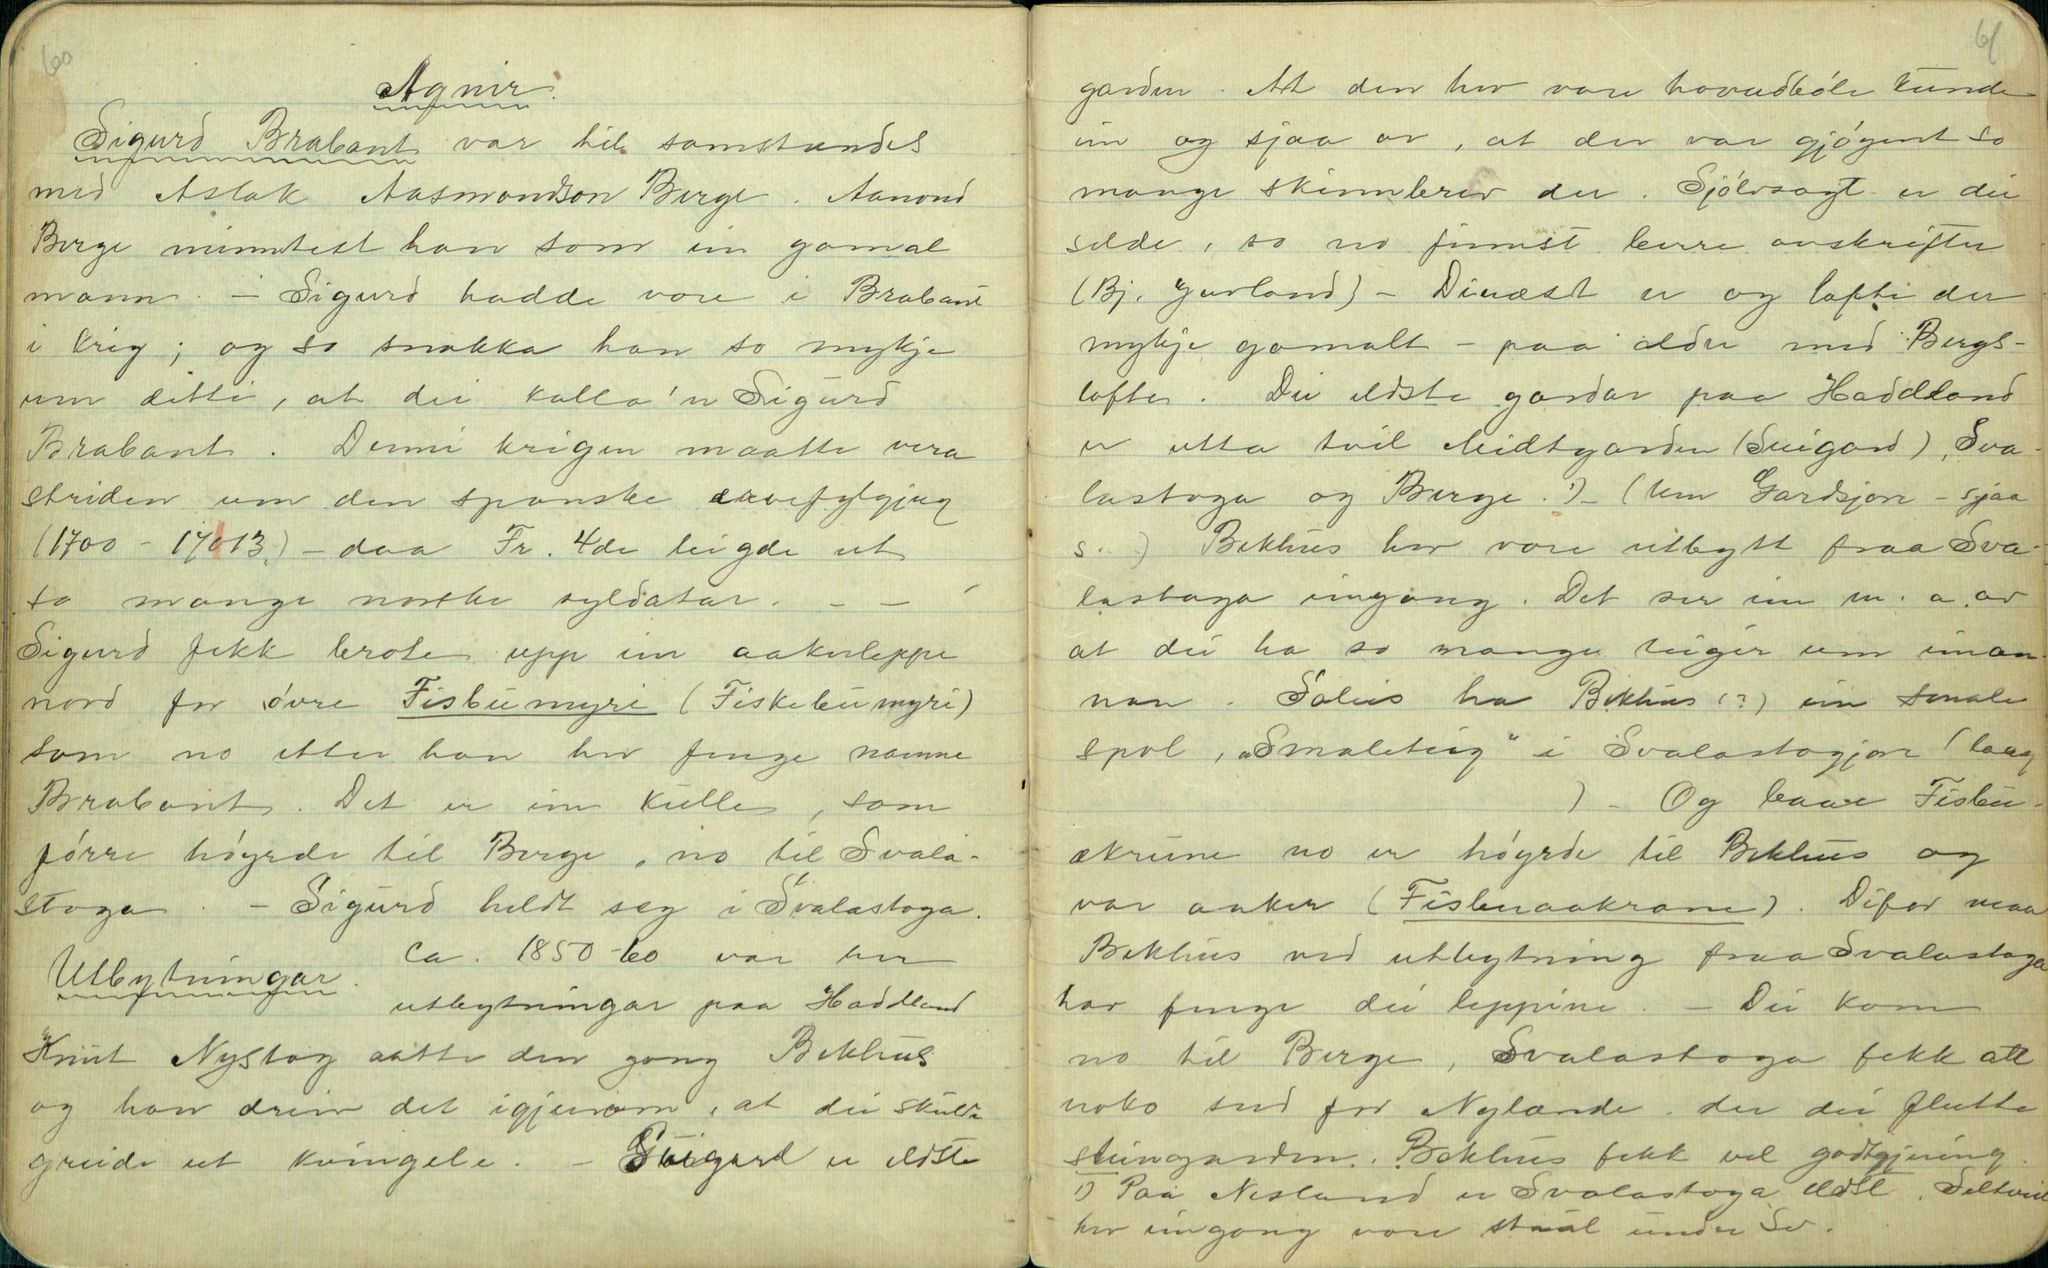 60
Agnir.
Sigurd Brabant var til samstundes
med Aslak Aasmondson Berge. Aanond
Berge minntest han som ein gamal
mann. - Sigurd hadde vore i Brabant
i krig; og so snakka han so mykje
um detti, at dei kalla'n Sigurd
Brabant. Denni krigen maatte vera
striden um den spanske arvefylgjug
(1700 - 1713) - daa Fr. 4de leigde ut
so mange norske syldatar. - -
Sigurd fekk brote upp ein aakerleppe
nord for øvre Fisbumyri (Fiskebumyri)
som no etter han hev fenge namne
Brabant. Det er ein kulle, som
förre höyrde til Berge, no til Svala-
stoga. - Sigurd heldt seg i Svalastoga.
Utbytningar. Ca. 1850-60 var her
utbytningar paa Haddland
Knut Nystog aatte den gong Bekhus
og han dreiv det igjenom, at dei skulde
greide ut kvingele. - Suigard er eldste
61
garden. At den hev vore hovudböle kunde
ein og sjaa av, at der var gjögent so
mange skinnbrev der. Sjölvsagt er dei
selde, so no finnst berre avskrifter
(Bj. Jurland) - Dinæst er og lofti der
mykje gamalt - paa alder med Bergs-
loftet. Dei eldste gardar paa Haddland
er utta tvil Midtgarden (Suigard), Sva-
lastoga og Berge. 1) - (Um Gardsjore - sjaa
s...) Bekhus hev vore utbytt fraa Sva-
lastoga eingong. Det ser ein m. a. av
at dei ha so mange teigir um einan-
nan. Soleis ha Bekhus (?) ein smale
spol, "Smaleteig" i Svalastogjore (laag
) - Og baae Fisbu-
ekrune no er höyrde til Bekhus og
var aaker (Fisbuaakrane). Difor maa
Bekhus ved utbytning fraa Svalastoga
har fenge dei leppine. - Dei kom
no til Berge, Svalastoga fekk att
noko sud for Nylænde der dei flutte
steingarden. Bekhus fekk vel godtgjering.
1) Paa Nesland er Svalastoga eldst.
hev eingong vore staal under Sv.